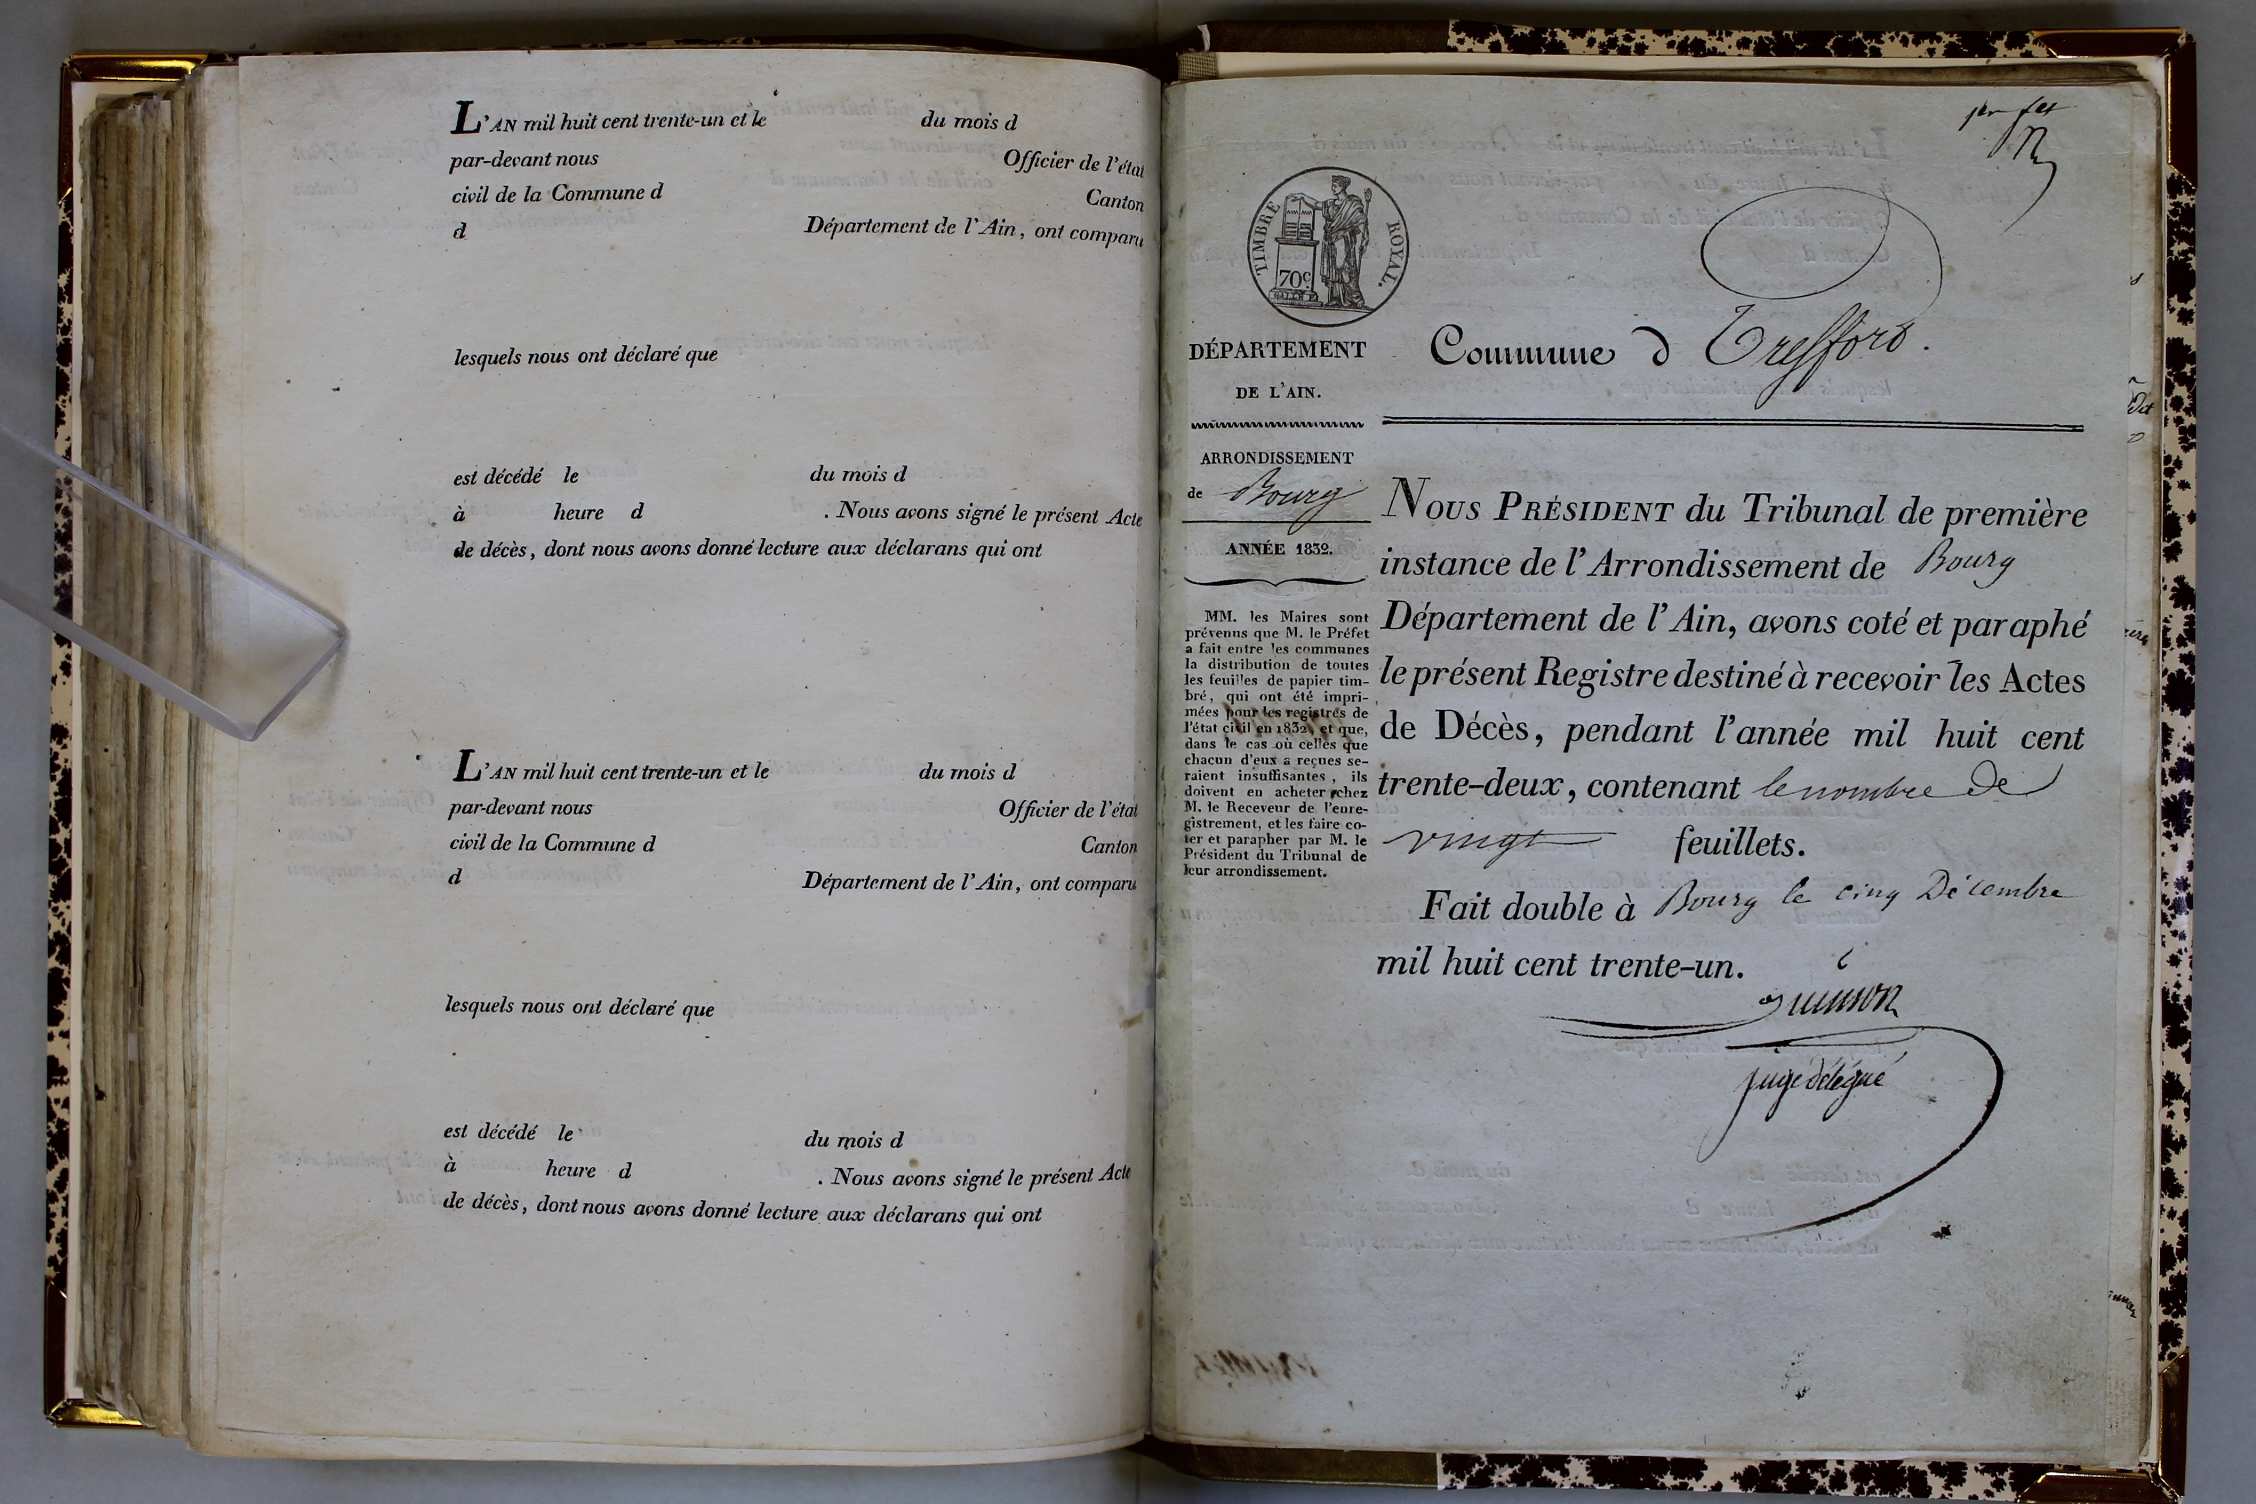 L'AN mil huit cent trente-un et le du mois d
par-devant nous Officier de l'état
civil de la Commune d Canton
d Département de l'Ain, ont comparu
lesquels nous ont déclaré que
est décédé le du mois d
à heure d . Nous avons signé le présent Acte
de décès, dont nous avons donné lecture aux déclarans qui ont
L'AN mil huit cent trente-un et le du mois d
par-devant nous Officier de l'état
civil de la Commune d Canton
d Département de l'Ain, ont comparu
lesquels nous ont déclaré que
est décédé le du mois d
à heure d . Nous avons signé le présent Acte
de décès, dont nous avons donné lecture aux déclarans qui ont
TIMBRE ROYAL.
70c
DÉPARTEMENT
DE L'AIN.
ARRONDISSEMENT
de Bourg
ANNÉE 1832.
MM. les Maires sont
prévenus que M. le Préfet
a fait entre les communes
la distribution de toutes
les feuilles de papier tim-
bré, qui ont été impri-
mées pour les registres de
l'état civil en 1832, et que,
dans le cas où celles que
chacun d'eux a reçues se-
raient insuffisantes, ils
doivent en acheter chez
M. le Receveur de l'enre-
gistrement, et les faire co-
ter et parapher par M. le
Président du Tribunal de
leur arrondissement.
Commune d Trefford.
NOUS PRÉSIDENT du Tribunal de première
instance de l'Arrondissement de Bourg
Département de l'Ain, avons coté et paraphé
le présent Registre destiné à recevoir les Actes
de Décès, pendant l'année mil huit cent
trente-deux, contenant le nombre de
vingt feuillets.
Fait double à Bourg le cinq Décembre
mil huit cent trente-un.
juge délégué